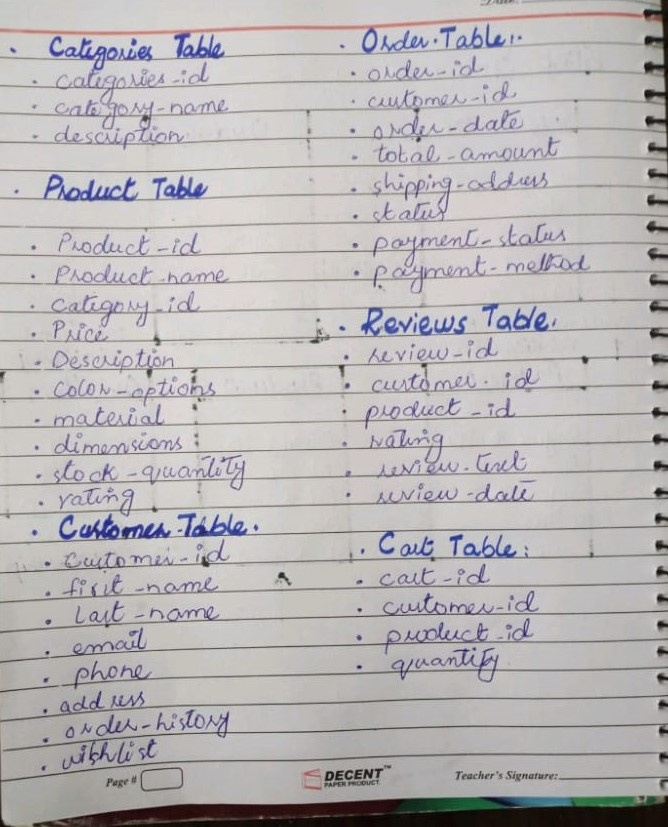 Date:
• Categories Table
• categories-id
• category-name
• description
• Product Table
• Product-id
• Product-name
• category-id
• Price
• Description
• Color-options
• material
• dimensions
• stock-quantity
• rating
• Customer Table.
• Customer-id
• first-name
• Last-name
• email
• phone
• address
• order-history
• wishlist
• Order Table:
• order-id
• customer-id
• order-date
• total-amount
• shipping-address
• status
• payment-status
• payment-method
• Reviews Table.
• review-id
• customer-id
• product-id
• rating
• review-text
• review-date
• Cart Table:
• cart-id
• customer-id
• product-id
• quantity
Page #
DECENT™
PAPER PRODUCT
Teacher's Signature: